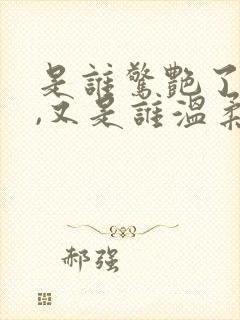 是誰驚艷了
,又是誰溫柔
郝强